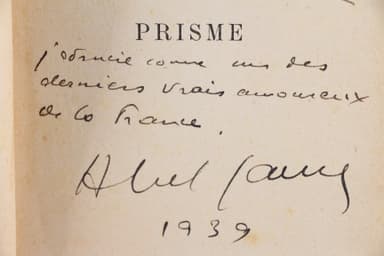 PRISME
comme un des
derniers vrais amoureux
de la France.
Abel Gance
1939